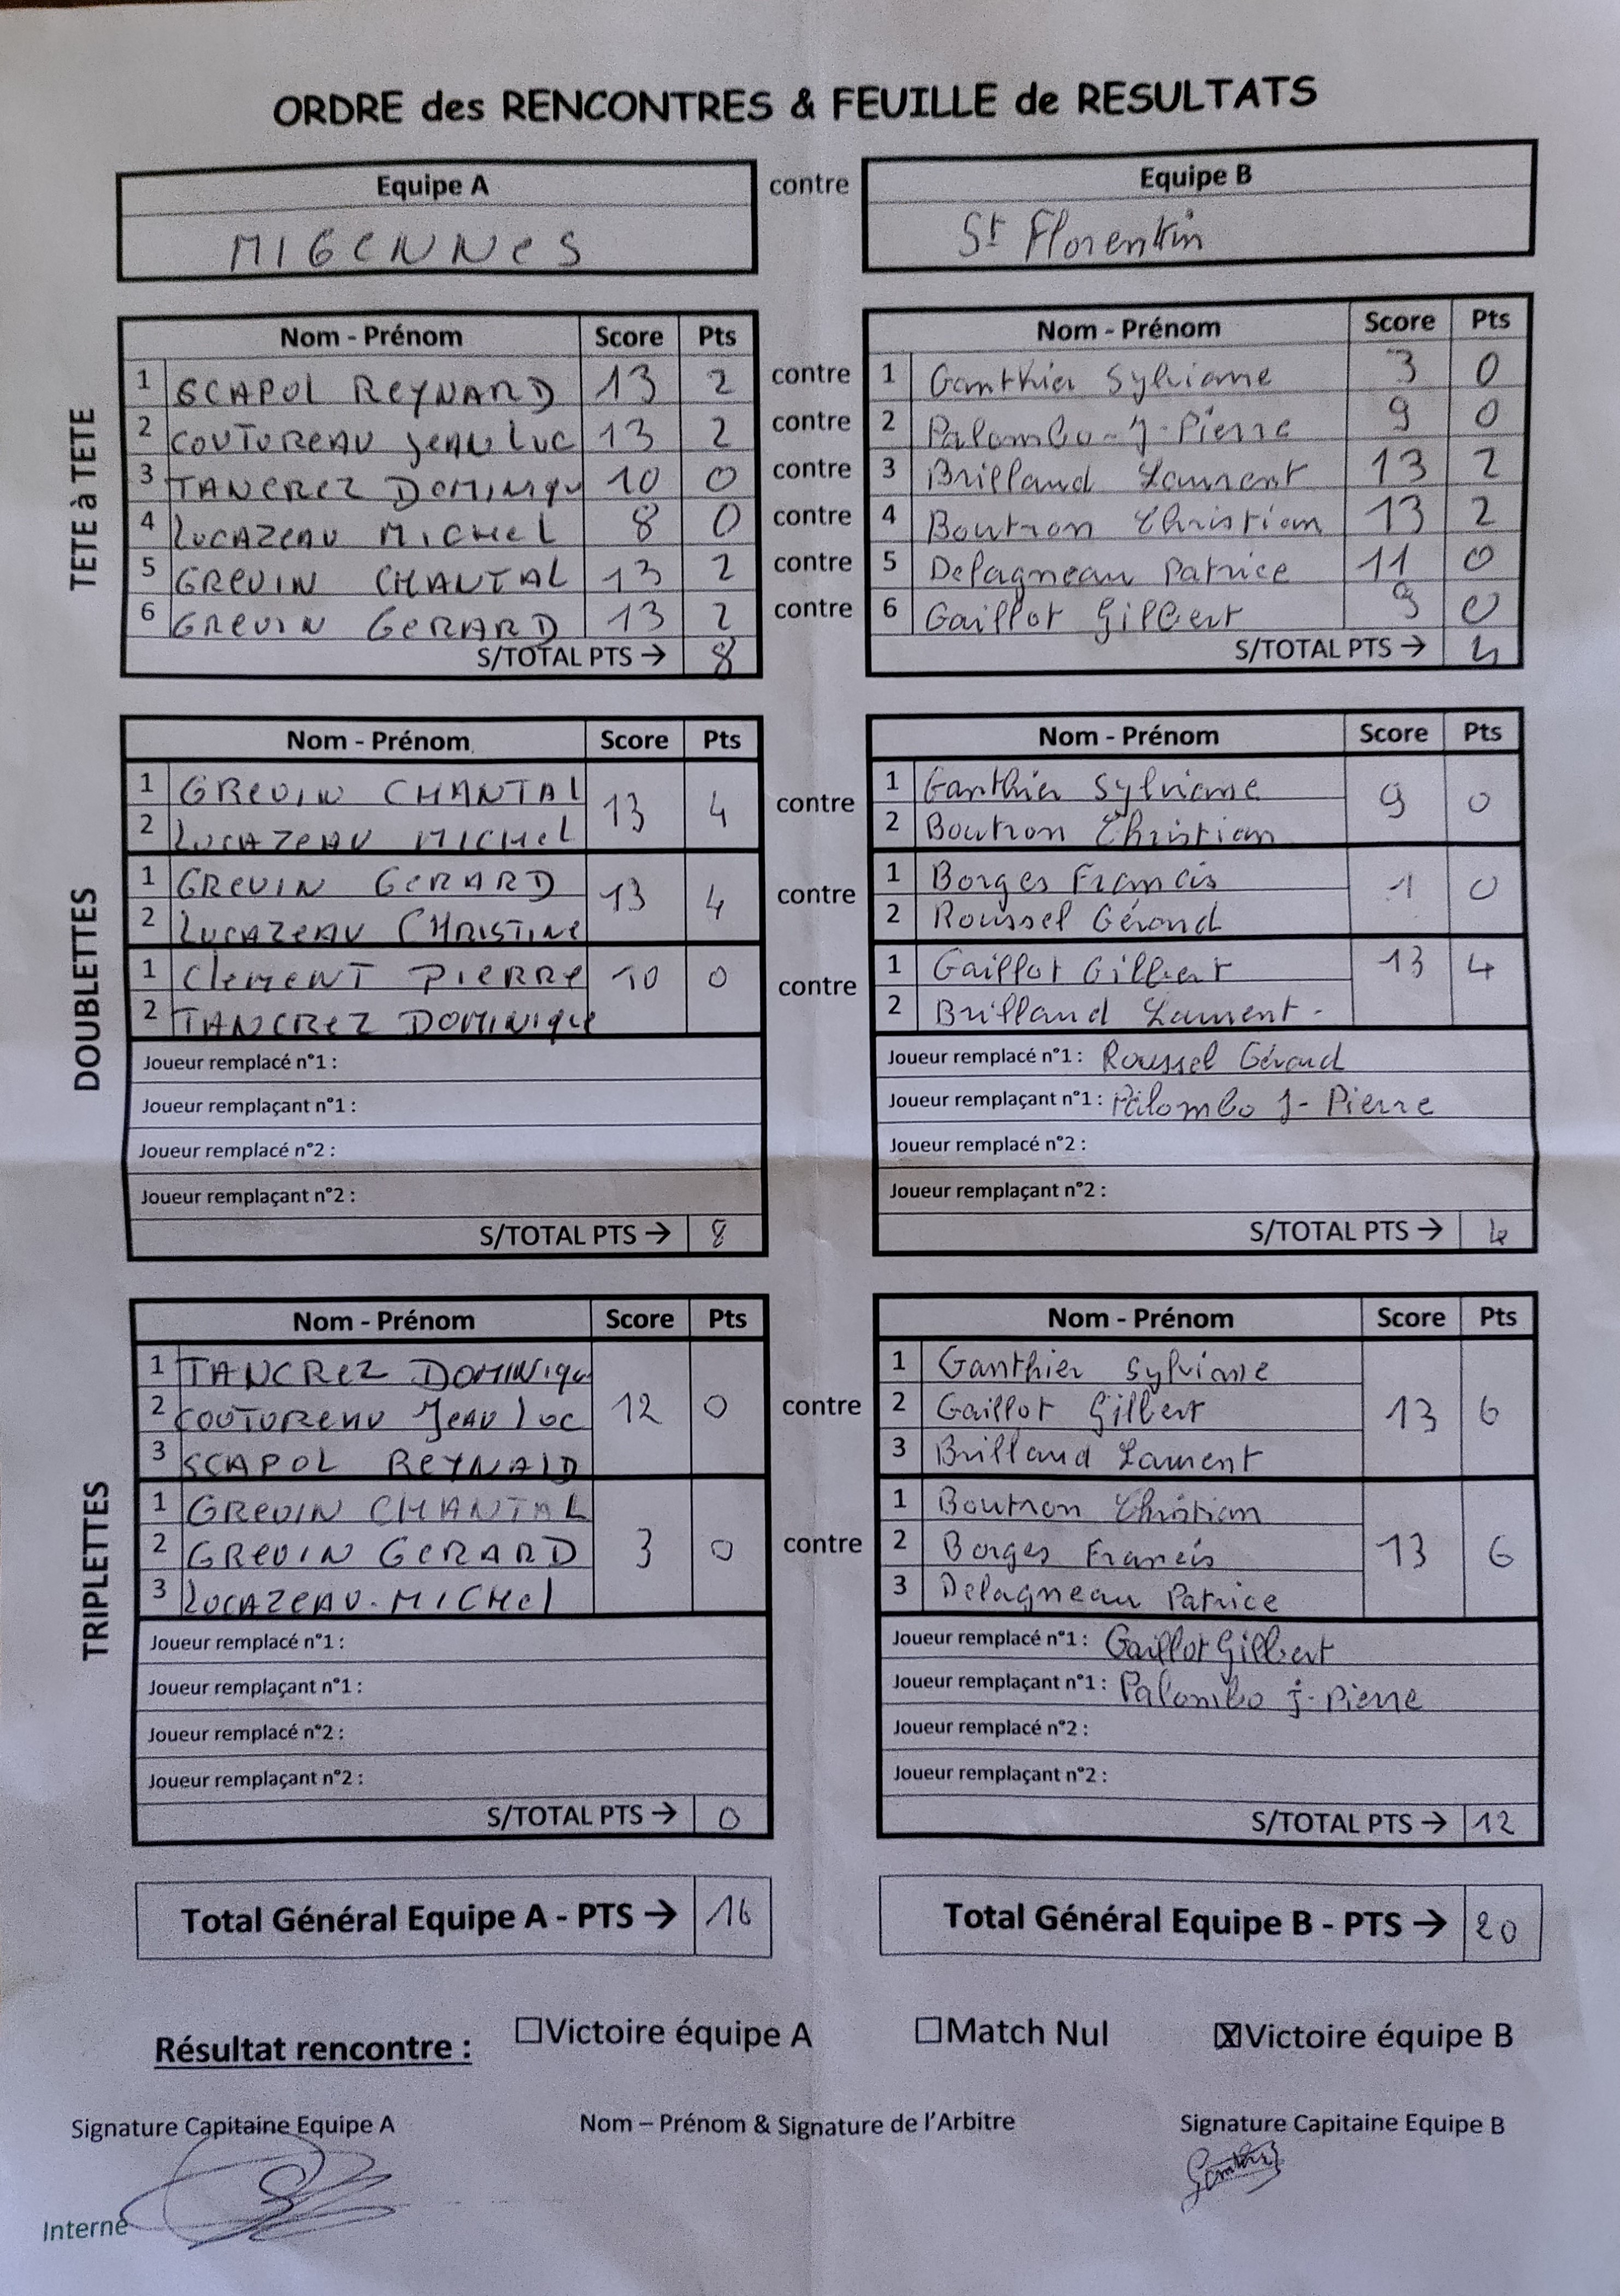 ORDRE des RENCONTRES & FEUILLE de RESULTATS
Equipe A contre Equipe B
MIGENNES St Florentin
TETE à TETE
Nom - Prénom Score Pts Nom - Prénom Score Pts
1 SCAPOL REYNARD 13 2 contre 1 Ganthier Sylviane 3 0
2 COUTUREAU JEAN LUC 13 2 contre 2 Palombo-J-Pierre 9 0
3 TANCREZ DOMINIQU 10 0 contre 3 Brilland Laurent 13 2
4 LUCAZEAU MICHEL 8 0 contre 4 Boutron Christian 13 2
5 GREVIN CHANTAL 13 2 contre 5 Delagneau Patrice 11 0
6 GREVIN GERARD 13 2 contre 6 Gaillot Gilbert 9 0
S/TOTAL PTS → 8 S/TOTAL PTS → 4
DOUBLETTES
Nom - Prénom Score Pts Nom - Prénom Score Pts
1 GREVIN CHANTAL 13 4 contre 1 Ganthier Sylviane 9 0
2 LUCAZEAU MICHEL 2 Boutron Christian
1 GREVIN GERARD 13 4 contre 1 Borges Francis 1 0
2 LUCAZEAU CHRISTINE 2 Roussel Gérard
1 CLEMENT PIERRE 10 0 contre 1 Gaillot Gilbert 13 4
2 TANCREZ DOMINIQUE 2 Brilland Laurent -
Joueur remplacé n°1 : Joueur remplacé n°1 : Roussel Gérard
Joueur remplaçant n°1 : Joueur remplaçant n°1 : Palombo J- Pierre
Joueur remplacé n°2 : Joueur remplacé n°2 :
Joueur remplaçant n°2 : Joueur remplaçant n°2 :
S/TOTAL PTS → 8 S/TOTAL PTS → 4
TRIPLETTES
Nom - Prénom Score Pts Nom - Prénom Score Pts
1 TANCREZ DOMINIQU 1 Ganthier Sylviane
2 COUTUREAU JEAN LUC 12 0 contre 2 Gaillot Gilbert 13 6
3 SCAPOL REYNALD 3 Brilland Laurent
1 GREVIN CHANTAL 1 Boutron Christian
2 GREVIN GERARD 3 0 contre 2 Borges Francis 13 6
3 LUCAZEAU-MICHEL 3 Delagneau Patrice
Joueur remplacé n°1 : Joueur remplacé n°1 : Gaillot Gilbert
Joueur remplaçant n°1 : Joueur remplaçant n°1 : Palombo j-Pierre
Joueur remplacé n°2 : Joueur remplacé n°2 :
Joueur remplaçant n°2 : Joueur remplaçant n°2 :
S/TOTAL PTS → 0 S/TOTAL PTS → 12
Total Général Equipe A - PTS → 16 Total Général Equipe B - PTS → 20
Résultat rencontre : ☐Victoire équipe A ☐Match Nul ☒Victoire équipe B
Signature Capitaine Equipe A Nom – Prénom & Signature de l'Arbitre Signature Capitaine Equipe B
Interne